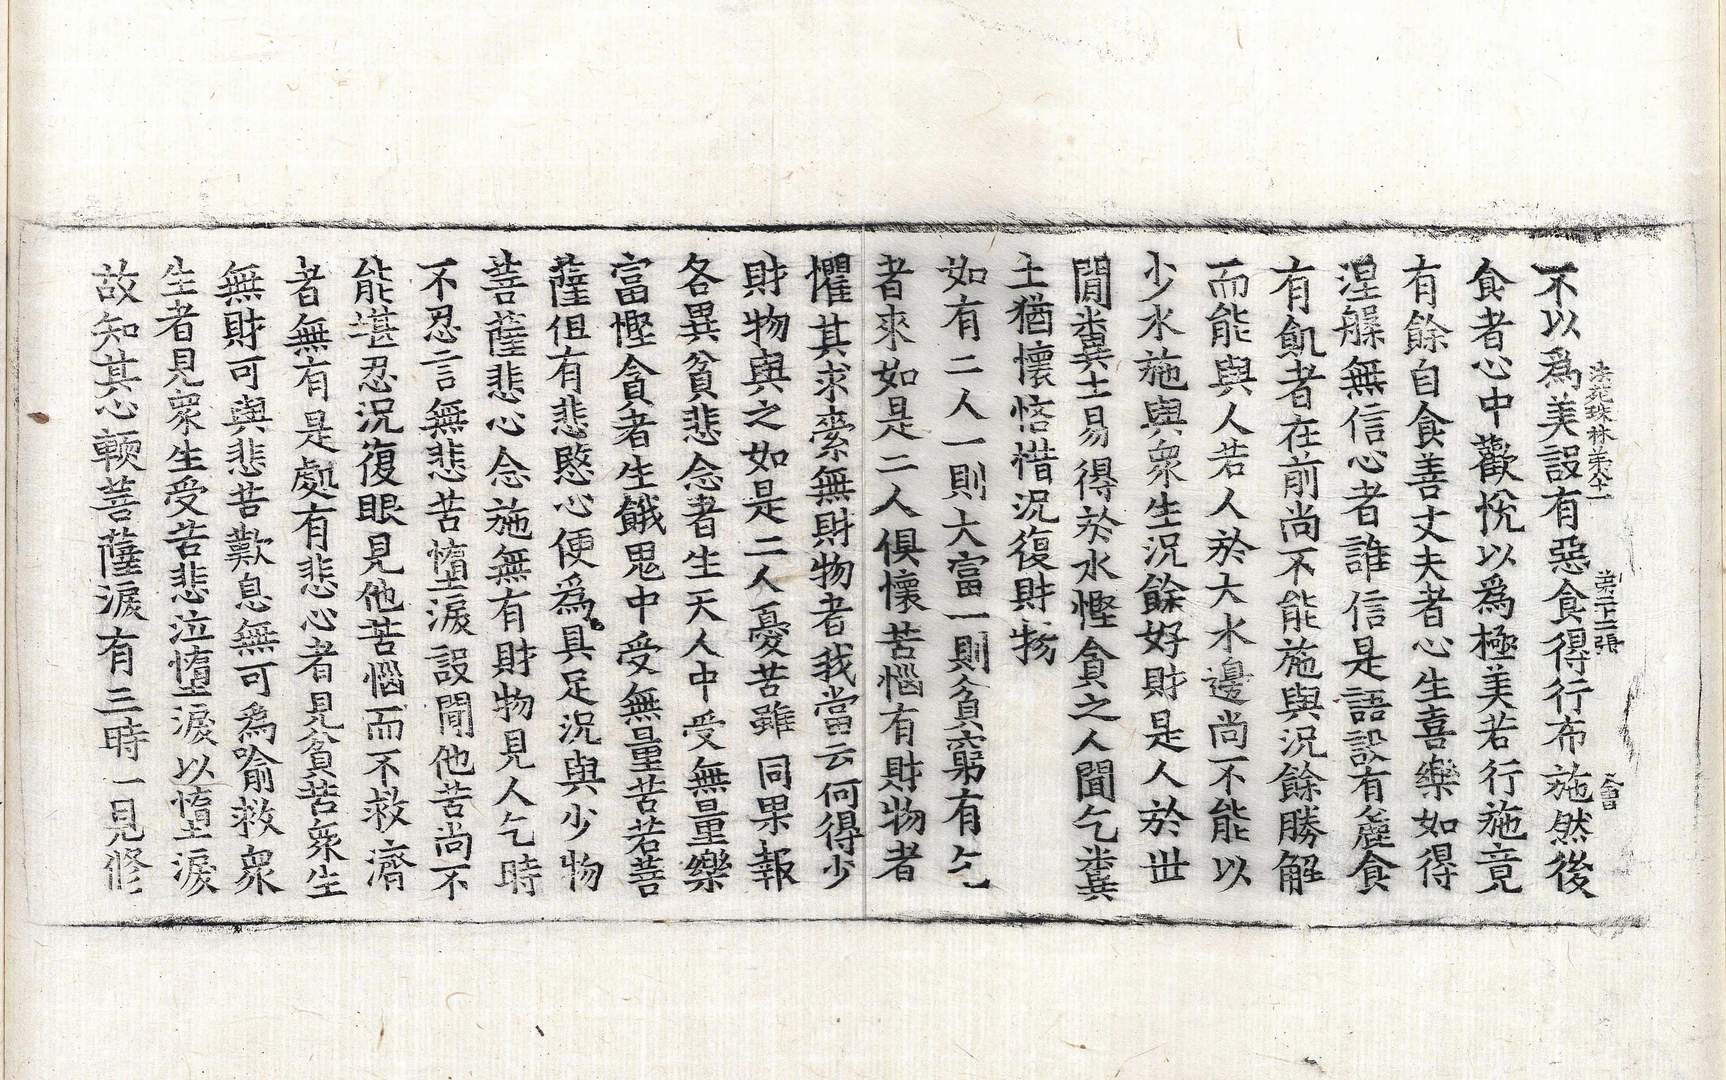 法苑珠林苐八十一 苐二十二張 會
不以爲美設有惡食得行布施然後
食者心中歡悅以爲極美若行施竟
有餘自食善丈夫者心生喜樂如得
涅槃無信心者誰信是語設有麁食
有飢者在前尚不能施與況餘勝解
而能與人若人於大水邊尚不能以
少水施與衆生況餘好財是人於世
閒糞土易得於水慳貪之人聞乞糞
土猶懷悋惜況復財物
如有二人一則大富一則貧窮有乞
者來如是二人俱懷苦惱有財物者
懼其求索無財物者我當云何得少
財物與之如是二人憂苦雖同果報
各異貧悲念者生天人中受無量樂
富慳貪者生餓鬼中受無量苦若菩
薩但有悲愍心便爲具足況與少物
菩薩悲心念施無有財物見人乞時
不忍言無悲苦墮淚設聞他苦尚不
能堪忍況復眼見他苦惱而不救濟
者無有是處有悲心者見貧苦衆生
無財可與悲苦歎息無可爲喻救衆
生者見衆生受苦悲泣墮淚以墮淚
故知其心輭菩薩淚有三時一見修